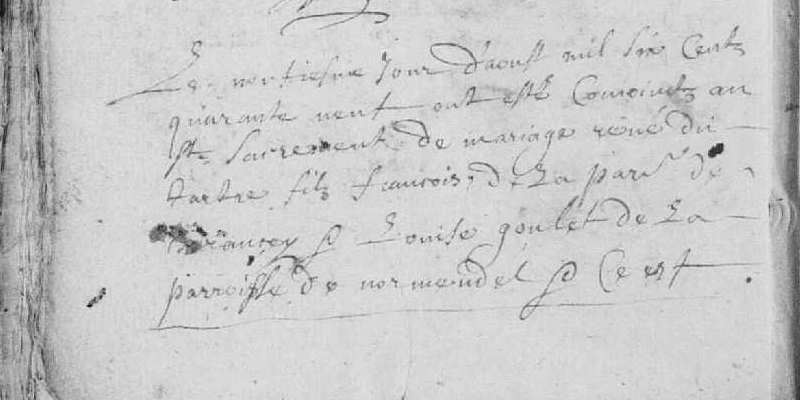 Le jour d'aoust mil six Centz
quarante neuf ont esté Conioinctz au
st Sacrement de mariage réné du
tartre filz francois, de La parr de
Louise goulet de La
parroisse de normendel Ce est